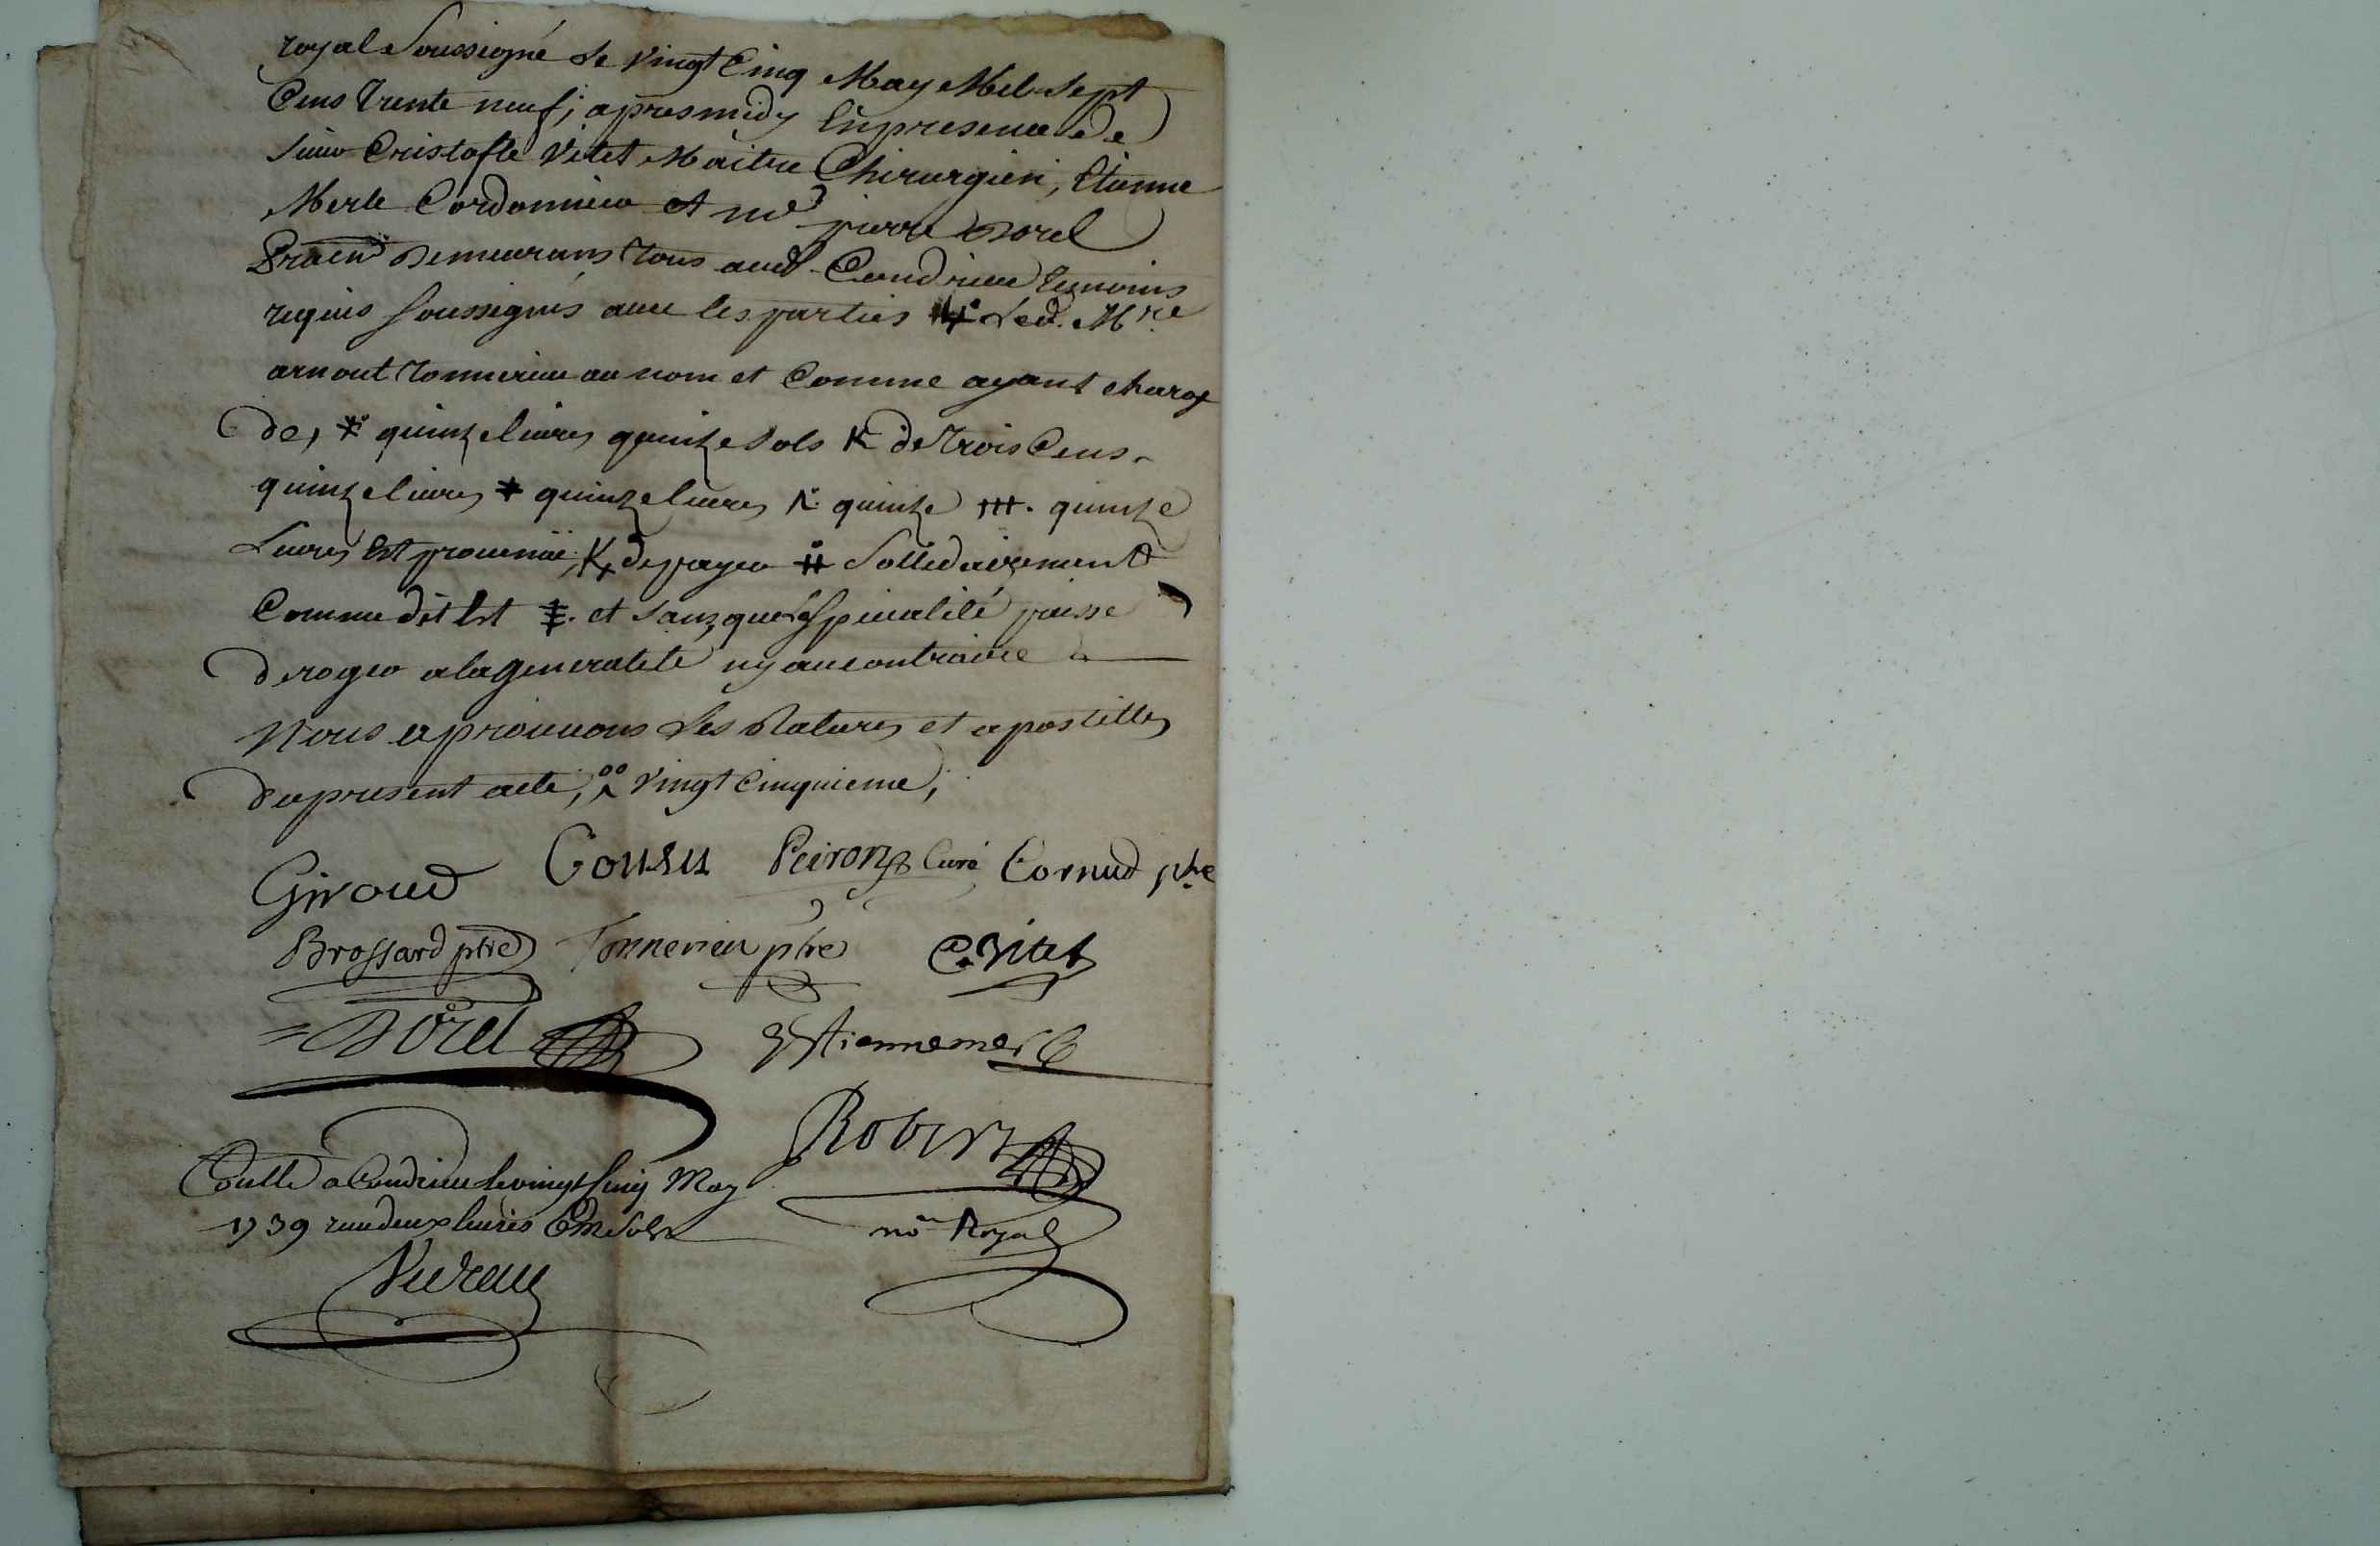 royal Soussigné Le vingt Cinq May Mil Sept
Cens Trente neuf; apres midy En presence de
Sieur Cristofle Vitet Maitre Chirurgien, Etienne
Merle Cordonnier et me pierre Dorel
Praen Demeurans Tous audt Condrieu temoins
requis Soussignés avec les parties Led. Mre
arnout Tonnerieu au nom et Comme ayant charge
de, quinze livres quinze sols de Trois Cens
quinze livres quinze livres quinze quinze
Livres Est provenüe, de payer Sollidairement
Comme dit Est et sans que la Specialité puisse
deroger a la generalité ny au contraire
Nous aprouvons Les Ratures et apostilles
du present acte, vingt Cinquieme,
Giroud Cousu Peiron Curé Cornud ptre
Brossard ptre Tonnerieu ptre C. Vitet
Dorel Estienne merle
Robin
Conllé a Condrieu le vingt Cinq May
1739 deux livres Sols no Royal